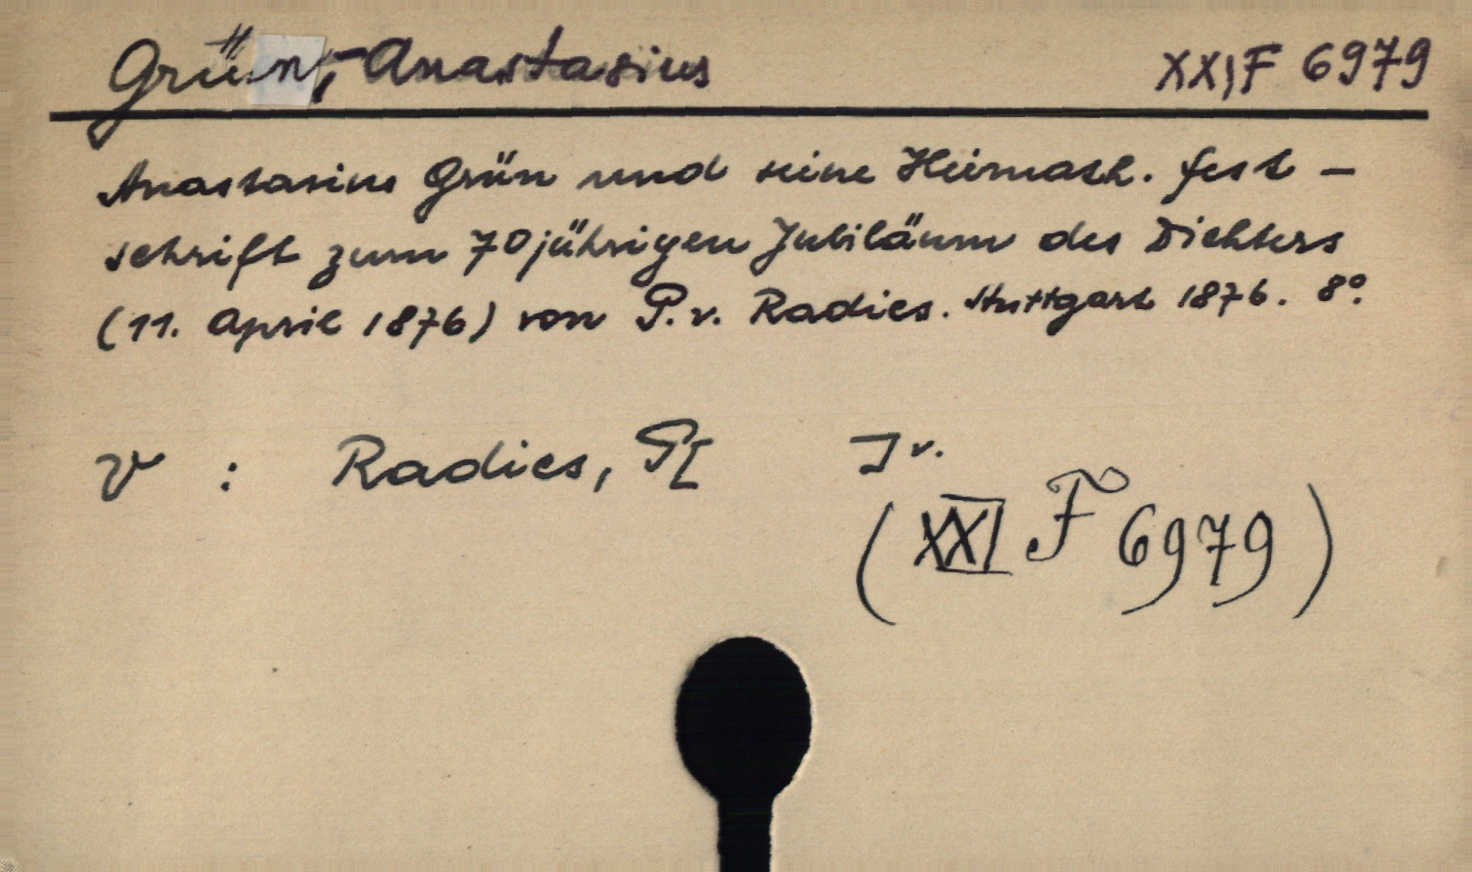 Grün, Anastasius XXI F 6979
Anastasius Grün und seine Heimath. Fest-
schrift zum 70jährigen Jubiläum des Dichters
(11. April 1876) von P. v. Radics. Stuttgart 1876. 8°.
v : Radics, P[ ] v.
(XXI F 6979)